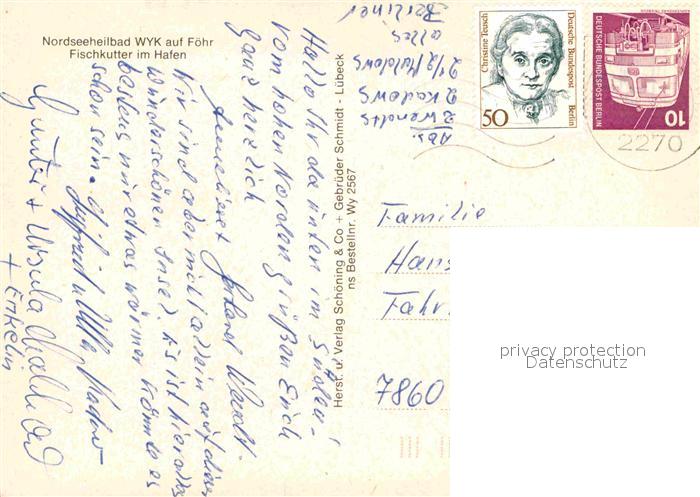 Nordseeheilbad WYK auf Föhr
Fischkutter im Hafen
Hallo Ihr da unten im Süden!
Vom hohen Norden grüßen Euch
ganz herzlich
Anneliese + Gerhard Wendt
Wir sind aber nicht allein auf dieser
wunderschönen Insel. Es ist hier alles
bestens nur etwas wärmer könnte es
schon sein.
Siegfried u. Ulla Kadow
Günter + Ursula
+ Enkelin
Herst. u. Verlag Schöning & Co + Gebrüder Schmidt - Lübeck
ns Bestellnr. Wy 2567
Abs.
2 Wendts
2 Kadows
2 1/2 Maldows
alles
Berliner
Christine Teusch
Deutsche Bundespost
Berlin
50
DEUTSCHE BUNDESPOST BERLIN
10
2270
Familie
Hans
Fahr
7860
privacy protection
Datenschutz